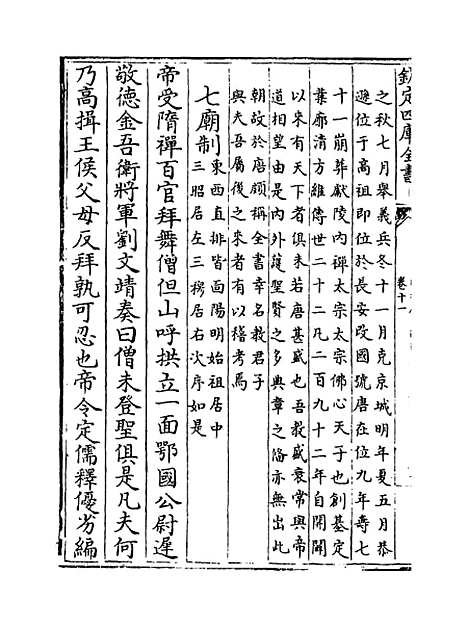 欽定四庫全書
卷十一
之秋七月舉義兵冬十一月克京城明年夏五月恭
遜位于高祖即位於長安改國號唐在位九年壽七
十一崩葬獻陵內禪太宗太宗佛心天子也創基定
業廓清方維傳世二十二凡二百九十二年自開闢
以來有天下者俱未若唐甚盛也吾教盛衰常與帝
道相望由是內外護聖賢之多典章之備亦無出此
朝故於唐頗稱全書幸名教君子
與夫吾屬後之來者有以稽考焉
七廟制東西直排皆面陽明始祖居中
三昭居左三穆居右次序如是
帝受隋禪百官拜舞僧但山呼拱立一面鄂國公尉遲
敬德金吾衛將軍劉文靖奏曰僧未登聖俱是凡夫何
乃高揖王侯父母反拜孰可忍也帝令定儒釋優劣編